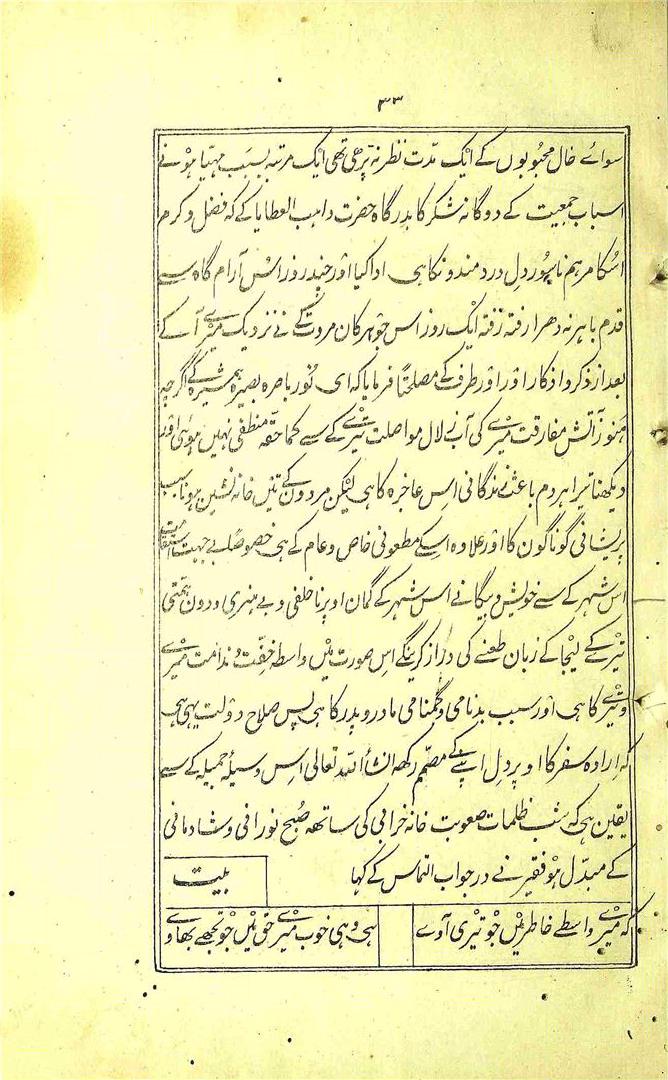 ۳۳
سوائے خال محبوبوں کے ایک مدّت نظر نہ پڑھی تھی ایک مرتبہ بسبب مہیّا ہونے
اسباب جمعیت کے دوگانہ شکر کا بدرگاہ حضرت واہب العطایا کے کہ فضل و کرم
اسکا مرہم ناسور دل دردمندونکا ہی ادا کیا اور چند روز اس آرام گاہ سے
قدم باہر نہ دھرا رفتہ رفتہ ایک روز اس جوہر کان مروت کے نے نزدیک میرے آ کے
بعد از ذکر و اذکار اور اور طرف کے مصلحتًا فرمایا کہ ای نور باصرہ بصیرہ ہمشیرہ کے اگرچہ
ہنوز آتش مفارقت میرے کی آب زلال مواصلت تیرے کے سے کماحقہ منطفی نہیں ہوئی اور
دیکھنا تیرا ہر دم باعث زندگانی اس عاجزہ کا ہی لیکن مردون کے تئیں خانہ نشین ہونا سبب
پریشانی گوناگون کا اور علاوہ اسکے مطعونی خاص و عام کے ہی خصوصًا بے جہت استقامت
اس شہر کے سے خویش و بیگانے اس شہر کے گمان اوپر ناخلفی و بے ہنری و دون ہمتی
تیرے کے لیجا کے زبان طعنے کی دراز کرینگے اس صورت میں واسطہ خفّت و ندامت میرے
و تیرے کا ہی اور سبب بدنامی و گمنامی مادر و پدر کا ہی پس صلاح دولت یہی ہی
کہ ارادہ سفر کا اوپر دل اپنے کے مصمّم رکھہ انشاء اللہ تعالی اس وسیلۂ جمیلہ کے سے
یقین ہی کہ شب ظلمات صعوبت خانہ خرابی کی ساتھہ صبح نورانی و شادمانی
کے مبدّل ہو فقیر نے در جواب التماس کے کہا بیت
کہ میرے واسطے خاطر میں جو تیری آوے ہی وہی خوب میرے حق میں جو تجھے بھاوے